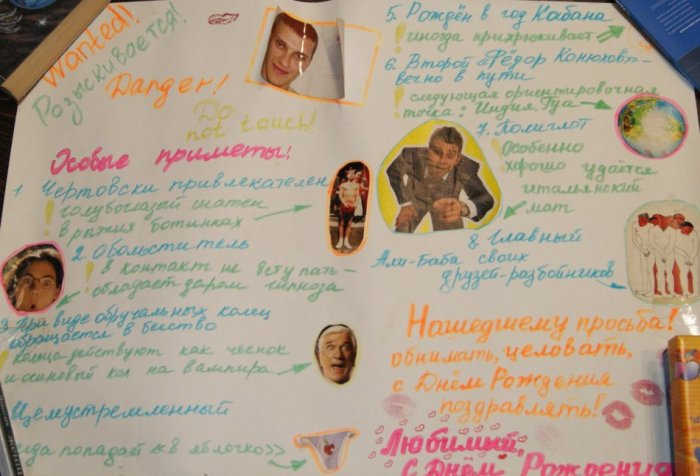 Wanted!
Розыскивается!
Danger!
Do
not touch!
Особые приметы!
1. Чертовски привлекателен
голубоглазый шатен
в рыжих ботинках
2. Обольститель
! в контакт не вступать –
обладает даром гипноза
3. При виде обручальных колец
обращается в бегство
! кольца действуют как чеснок
и осиновый кол на вампира
Целеустремленный
попадает «в яблочко»
5. Рождён в год Кабана
! иногда прихрюкивает
6. Второй «Фёдор Конюхов» –
вечно в пути
! следующая ориентировочная
точка: Индия, Гоа
7. Полиглот
! Особенно
хорошо удаётся
итальянский
мат
8 Главный
Али-Баба своих
друзей-разбойников
Нашедшему просьба!
обнимать, целовать,
с Днём Рождения
поздравлять!
Любимый,
С Днём Рождения